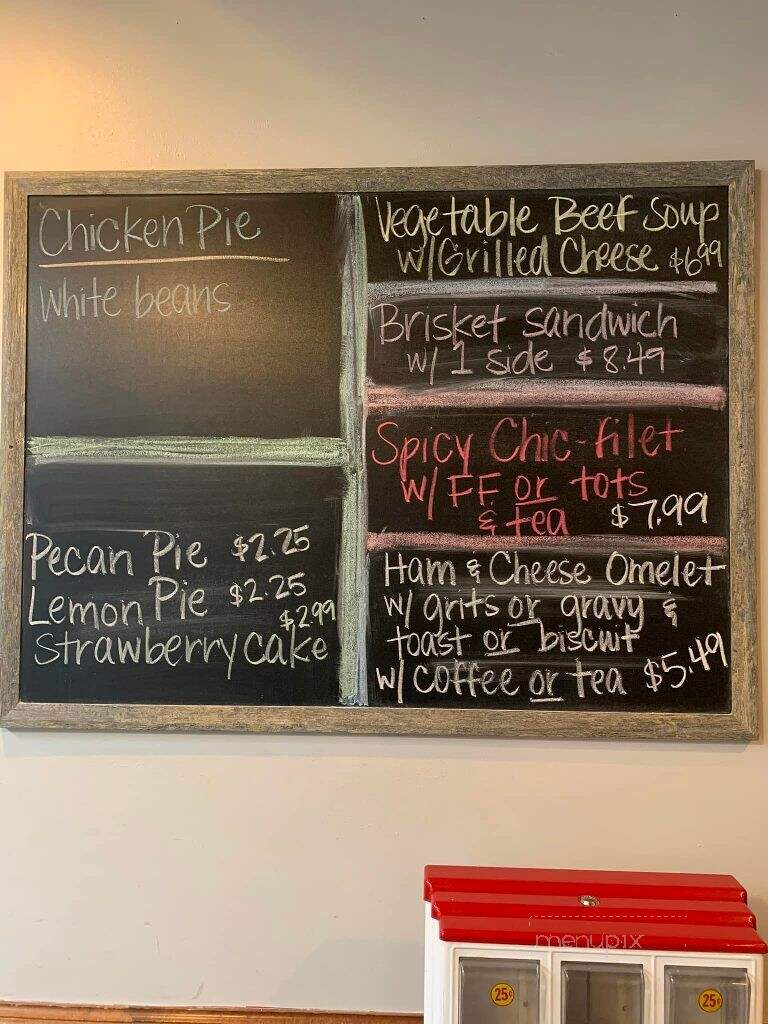 Chicken Pie
White beans
Pecan Pie $2.25
Lemon Pie $2.25
$2.99
Strawberry cake
Vegetable Beef Soup
w/Grilled Cheese $6.99
Brisket Sandwich
w/ 1 side $8.49
Spicy Chic-filet
w/ FF or tots
& tea $7.99
Ham & Cheese Omelet
w/ grits or gravy &
toast or biscuit
w/ coffee or tea $5.49
menupix
25¢ 25¢